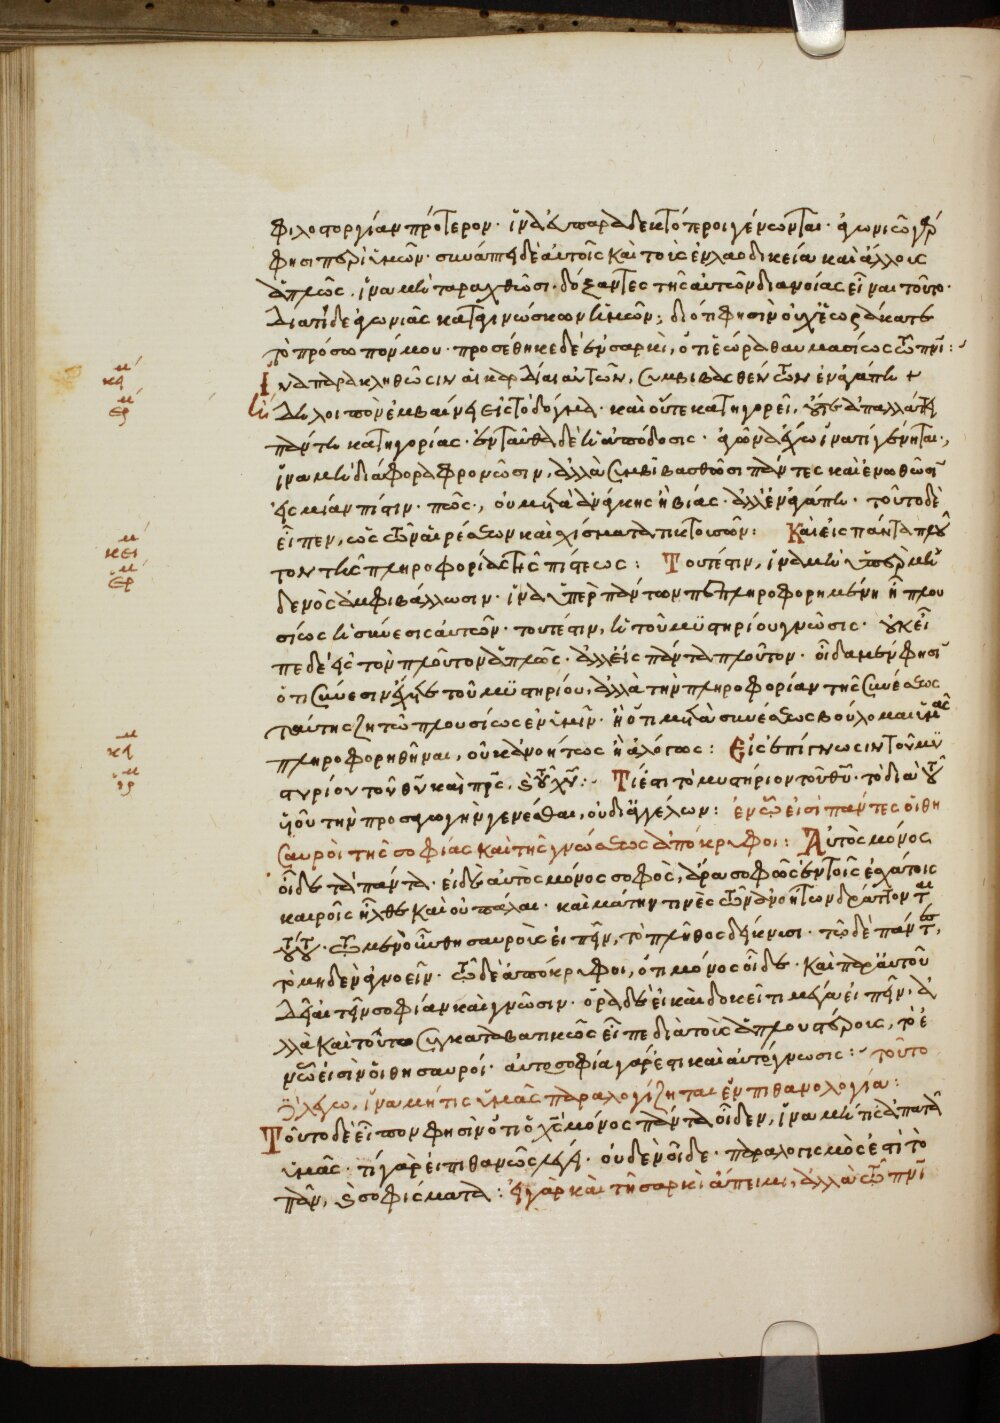 φιλοστοργίαν πρότερον· ἵνα εὐπαραδεκτότεροι γένωνται· ἀγωνιῶ γάρ
φησι περὶ ὑμῶν· συνάπτει δὲ αὐτοῖς καὶ τοῖς ἐν λαοδικεία καὶ ἄλλοις
ἁπλῶς, ἵνα μὴ ταραχθῶσι· δόξαντες τῆς αὐτῶν διανοίας εἶναι τοῦτο·
διατί δὲ ἀγωνιᾶς καταγινώσκων ἡμῶν; διότι φησὶν οὐχ ἑωράκατε
τὸ πρόσωπόν μου· προσέθηκε δὲ ἐν σαρκί, ὅτι ἑώρα θαυμασίως ἐν πνι:
Ἵνα παρακληθῶσιν αἱ καρδίαι αὐτῶν, συμβιβασθέντων ἐν ἀγάπη +
Ἤδη λοιπὸν ἐμβαίνει εἰς τὸ δόγμα· καὶ οὔτε κατηγορεῖ, οὔτε ἀπαλλάττει
πάντη κατηγορίας· ἐνταῦθα δὲ ἡ ἀπόδοσις· ἀγῶνα ἔχω ἵνα τί γένηται·,
ἵνα μὴ διάφορα φρονῶσιν, ἀλλὰ συμβιβασθῶσι πάντες καὶ ἑνωθῶσι
εἰς μίαν πίστιν· πῶς·, οὐ μετὰ ἀνάγκης ἢ βίας· ἀλλ' ἐν ἀγάπη· τοῦτο δὲ
εἶπεν, ὡς τῶν αἱρέσεων καὶ σχίσματα τικτουσῶν: Καὶ εἰς πάντα πλοῦ
τον τῆς πληροφορίας τῆς πίστεως: Τουτέστιν, ἵνα μὴ ὑπὲρ μη
δενὸς ἀμφιβάλλωσιν· ἵνα ὑπὲρ πάντων πεπληροφορημένη ἢ πλου
σίως ἡ σύνεσις αὐτῶν· τουτέστιν, ἡ τοῦ μυστηρίου γνῶσις· οὐκ εἶ
πε δὲ εἰς τὸν πλοῦτον ἁπλῶς· ἀλλ' εἰς πάντα πλοῦτον· οἶδα μέν φησι
ὅτι σύνεσιν ἔχετε τοῦ μυστηρίου, ἀλλὰ τὴν πληροφορίαν τῆς συνέσεως
ταύτης ζητῶ πλουσίως ἐν ὑμῖν· ἢ ὅτι μετὰ συνέσεως βούλομαι ὑμᾶς
πληροφορηθῆναι, οὐκ ἀνοήτως ἢ ἀλόγως: Εἰς ἐπίγνωσιν τοῦ μυ
στηρίου τοῦ θυ καὶ πρς, καὶ τοῦ χυ: Τί ἐστι τὸ μυστήριον τοῦ θυ· τὸ διὰ τοῦ
υἱοῦ τὴν προσαγωγὴν γενέσθαι, οὐ δι' ἀγγέλων: ἐν ᾧ εἰσὶ πάντες οἱ θη
σαυροὶ τῆς σοφίας καὶ τῆς γνώσεως ἀπόκρυφοι: Αὐτὸς μόνος
οἶδε τὰ πάντα· εἰ δὲ αὐτὸς μόνος σοφός, ἄρα σοφῶς ἐν τοῖς ἐσχάτοις
καιροῖς ἦλθε καὶ οὐ πάλαι· καὶ μάτην τινὲς τῶν ἀνοήτων
τούτου· τῶ μὲν οὖν θησαυροὺς εἰπεῖν, τὸ πλῆθος δείκνυσι· τῶ δὲ πάντες,
τὸ μηδὲν ἀγνοεῖν· τῶ δὲ ἀπόκρυφοι, ὅτι μόνος οἶδε· καὶ παρ' αὐτοῦ
δεῖ αἰτεῖν σοφίαν καὶ γνῶσιν· ὅρα δὲ εἰ καὶ δοκεῖ τι μέγα εἰπεῖν· ἀ
λλὰ καὶ τοῦτο συγκαταβατικῶς εἶπε διὰ τοὺς ἁπλουστέρους, τὸ ἐ
ν ᾧ εἰσὶν οἱ θησαυροί· αὐτοσοφία γάρ ἐστι καὶ αὐτόγνωσις: τοῦτο
δὲ λέγω, ἵνα μή τις ὑμᾶς παραλογίζηται ἐν πιθανολογία:
Τοῦτο δὲ εἶπον φησὶν ὅτι ὁ χς μόνος πάντα οἶδεν, ἵνα μή τις ἀπατᾶ
ὑμᾶς· τί γὰρ εἰ πιθανῶς λέγει· οὐδὲν οἶδε· παραλογισμὸς ἐστὶ τὸ
πᾶν, καὶ σοφίσματα: εἰ γὰρ καὶ τῆ σαρκὶ ἄπειμι, ἀλλὰ τῶ πνι